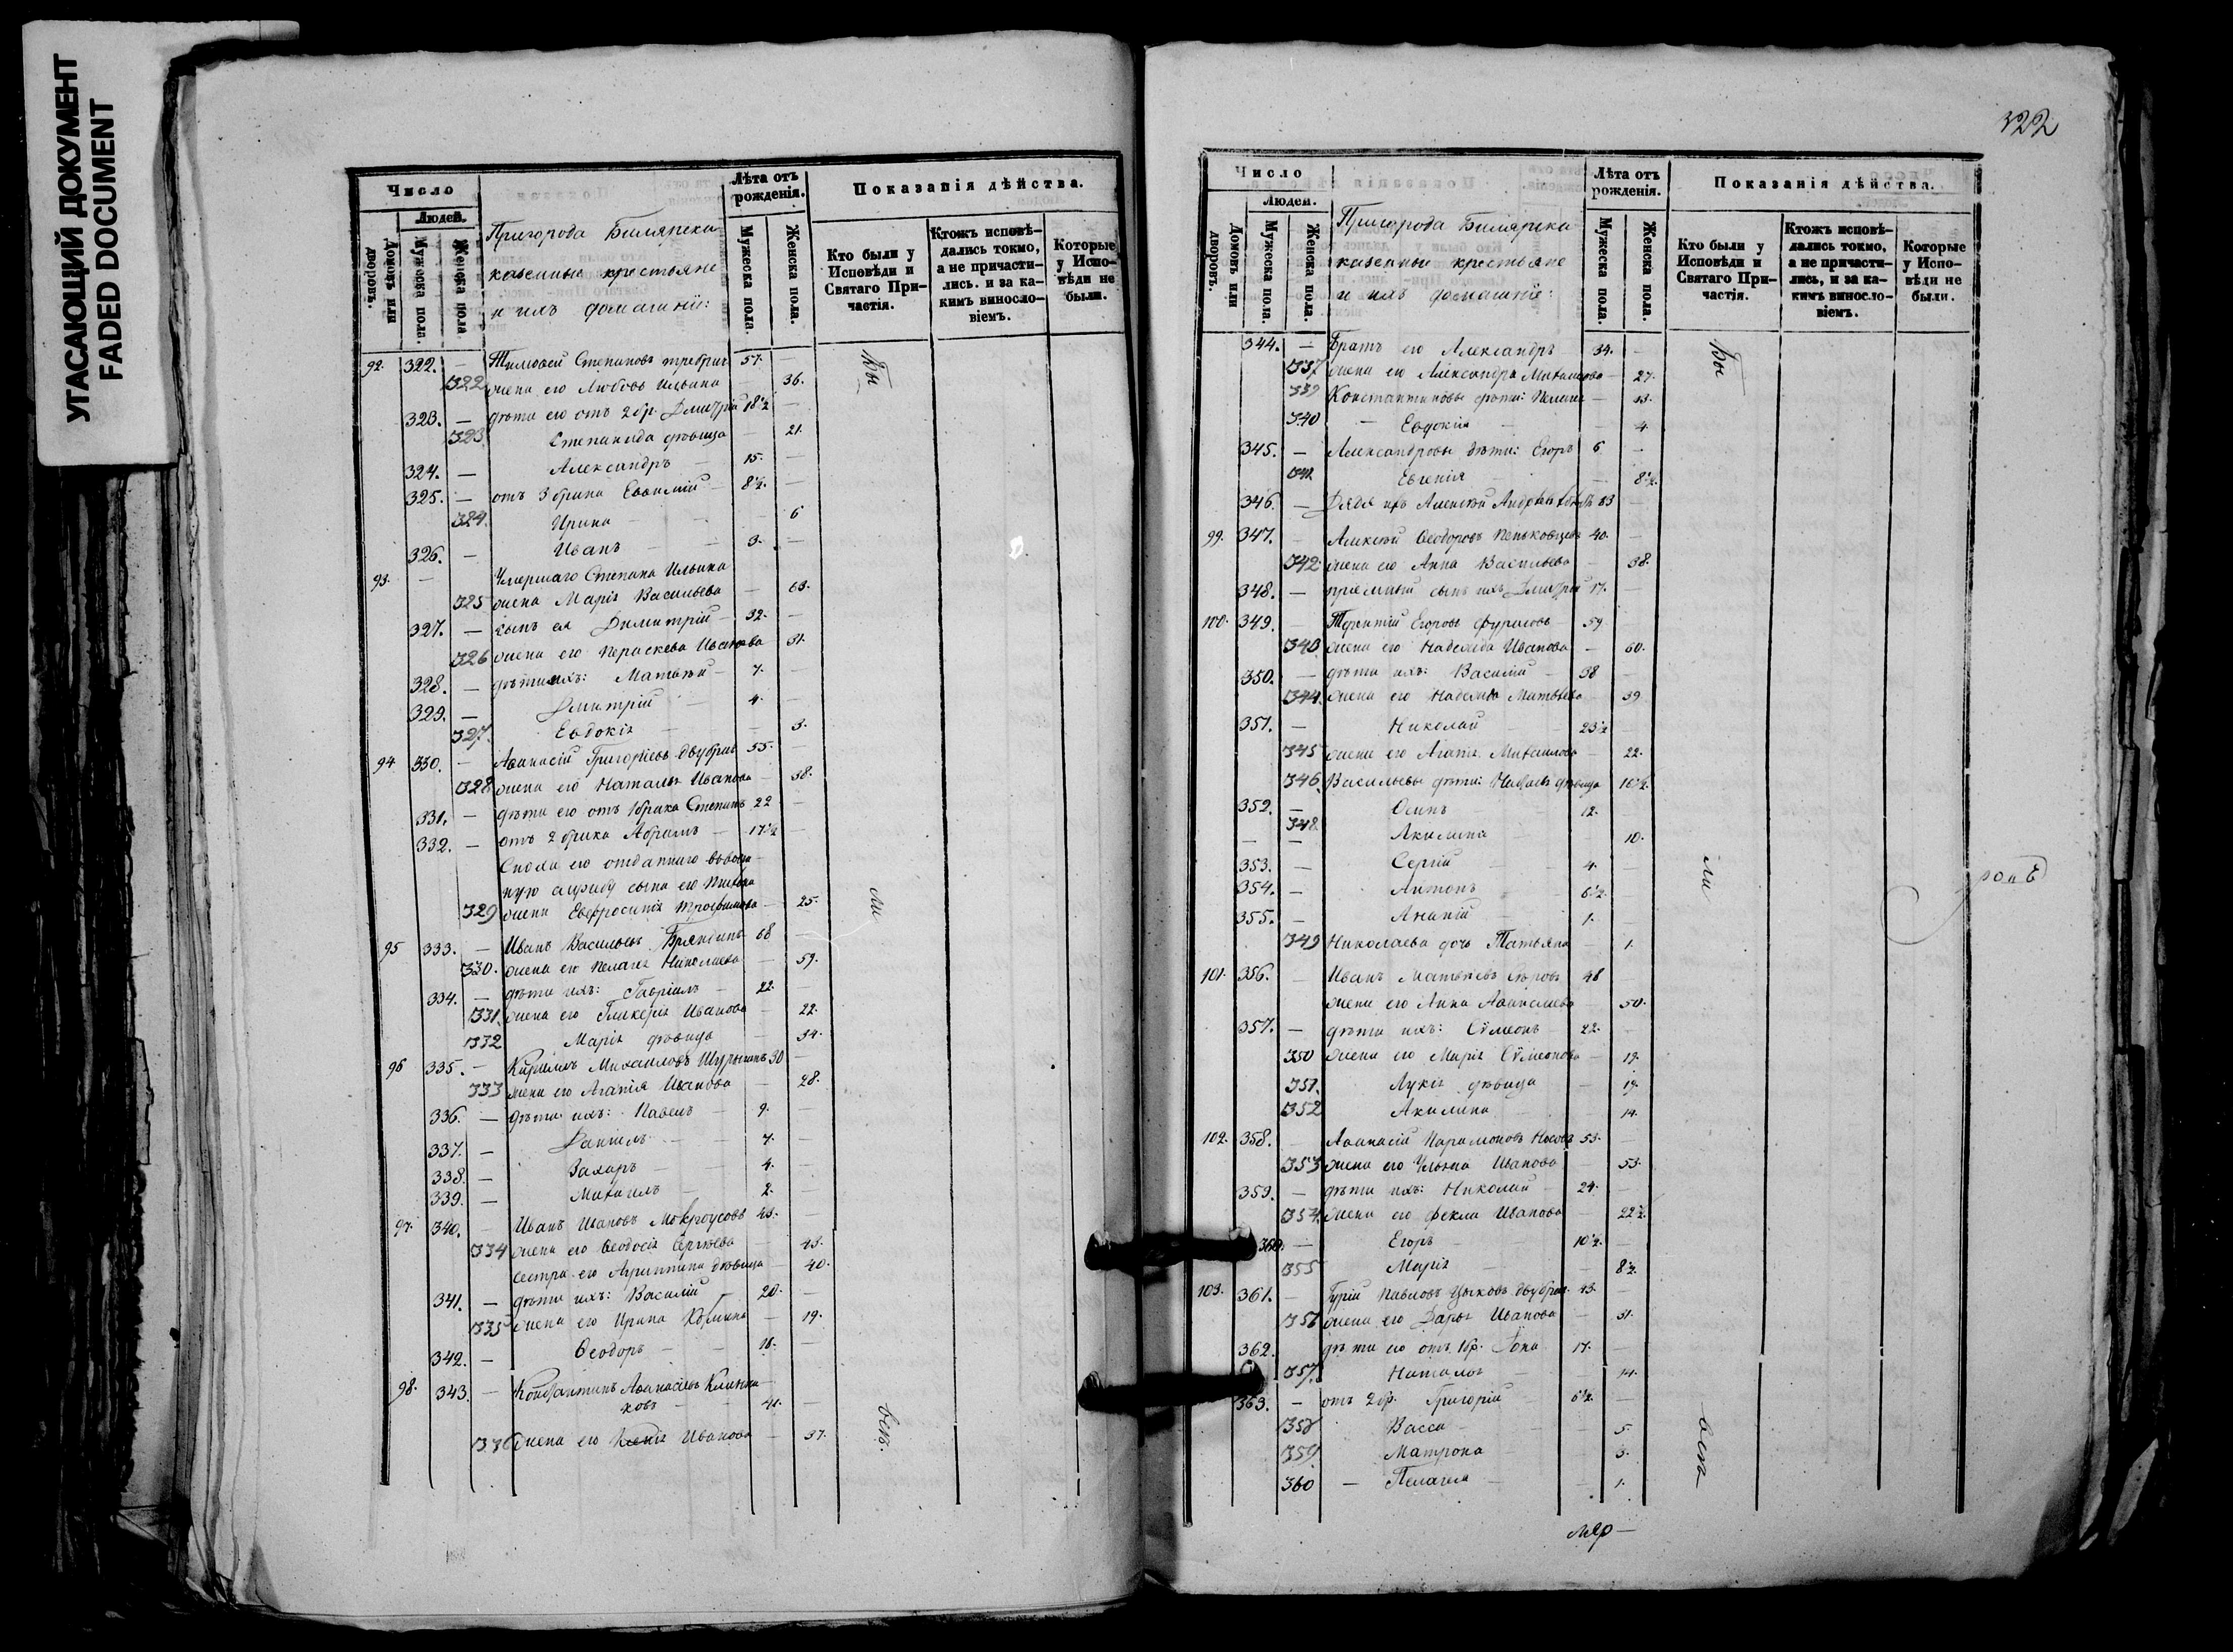 УГАСАЮЩИЙ ДОКУМЕНТ
FADED DOCUMENT
Число
Людей.
Домовъ или дворовъ.
Мужеска пола.
Женска пола
Пригорода Билярска
казенные крестьяне
и ихъ домашніе:
Лѣта отъ рожденія.
Мужеска пола.
Женска пола.
Показанія дѣйства.
Кто были у Исповѣди и Святаго При-частія.
Ктожъ исповѣ-дались токмо, а не причасти-лись. и за ка-кимъ винослo-віемъ.
Которые у Испо-вѣди не были.
92. 322. — Тимофей Степановъ требрач 57. —
322 жена его Любовь Ильина 36.
323. — дѣти его отъ 2 бр. Дмитрій 18½ —
323 Степанида дѣвица — 21.
324. — Александръ — 15. —
325. — отъ 3 брака Евфимій — 8½. —
324. Ирина — 6
326. — Иванъ — 3. —
93. — Умершаго Степана Ильина
325 жена Марія Васильева — 63.
327. — сынъ ея Димитрій — 32. —
326 жена его Параскева Иванова 31.
328. — дѣти ихъ: Матвѣй — 7. —
329. — Дмитрій 4. —
327. Евдокія — 3.
94 330. — Афанасій Григорьевъ двубрач 55. —
328 жена его Наталья Иванова — 38.
331. — дѣти его отъ 1 брака Степанъ 22 —
332. — отъ 2 брака Абрамъ — 17½ —
Сноха его отданнаго въ воен-
ную службу сына его
329 жена Евфросинія Трофимова — 25.
95 333. — Иванъ Васильевъ 68 —
330. жена его Пелагея Николаева — 59.
334. — дѣти ихъ: Гавріилъ — 22. —
331. жена его Гликерія Иванова — 22.
332 Марія дѣвица — 34.
96 335. — Кириллъ Михайловъ Шурыгинъ 30 —
333 жена его Агафія Иванова — 28.
336. — дѣти ихъ: Павелъ — 9. —
337. — Даніилъ — 7. —
338. — Захаръ — 4. —
339. — Михаилъ — 2. —
97. 340. — Иванъ Ивановъ Мокроусовъ 43. —
334 жена его Феодосія Сергѣева — 43.
сестра его Агриппина дѣвица — 40.
341. — дѣти ихъ: Василій — 20. —
335 жена его Ирина — 19.
342. — Феодоръ — 18. —
98. 343. — Константинъ Афанасьевъ
ковъ — 41. —
336 жена его Ксенія Иванова — 37.
Бы
ли
всѣ.
322
Число
Людей.
Домовъ или дворовъ.
Мужеска пола.
Женска пола.
Пригорода Билярска
казенные крестьяне
и ихъ домашніе:
Лѣта отъ рожденія.
Мужеска пола.
Женска пола.
Показанія дѣйства.
Кто были у Исповѣди и Святаго При-частія.
Ктожъ исповѣ-дались токмо, а не причасти-лись, и за ка-кимъ винослo-віемъ.
Которые у Испо-вѣди не были.
344. — Братъ его Александръ 34. —
337 жена его Александра Михайлова — 27.
339 Константиновы дѣти: Пелагія — 13.
340 — Евдокія — 4.
345. — Александровы дѣти: Егоръ 6 —
341. Евгенія — 8½.
346. — Дядя ихъ Алексѣй 83 —
99. 347. — Алексѣй Феодоровъ Пеньковцевъ 40. —
342 жена его Анна Васильева — 38.
348. — пріемный сынъ ихъ Дмитрій 17. —
100. 349. — Терентій Егоровъ Фурасовъ 59 —
343 жена его Надежда Иванова — 60.
350. — дѣти ихъ: Василій — 38 —
344. жена его Надежда Матвѣева — 39
351. — Николай — 23½ —
345 жена его Агафія Михайлова — 22.
346. Васильевы дѣти: дѣвица 16½.
352. — Осипъ — 12. —
348 Акилина — 10.
353. — Сергій — 4. —
354. — Антонъ — 6½. —
355. — Ананій — 1. —
349 Николаева дочь Татьяна — 1.
101. 356. — Иванъ Матвѣевъ 48
жена его Анна Афанасьева — 50.
357. — дѣти ихъ: Сѵмеонъ 22. —
350 жена его Марія Сѵмеонова — 19.
351. Лукія дѣвица — 19.
352 Акилина — 14.
102. 358. — Афанасій Парамоновъ Носовъ 53. —
353 жена его Ульяна Иванова — 53.
359. — дѣти ихъ: Николай — 24. —
354. жена его Фекла Иванова — 22½.
360. — Егоръ — 10½. —
355 Марія — 8½.
103. 361. — Гурій Павловъ Цыковъ двубрач. 43. —
356 жена его Дарья Иванова — 31.
362. дѣти его отъ 1 бр. Іона 17. —
357. Наталья — 14.
363. — отъ 2 бр. Григорій — 6½. —
358 Васса — 5.
359 Матрона — 3.
360 — Пелагея — 1.
Бы
ли
всѣ